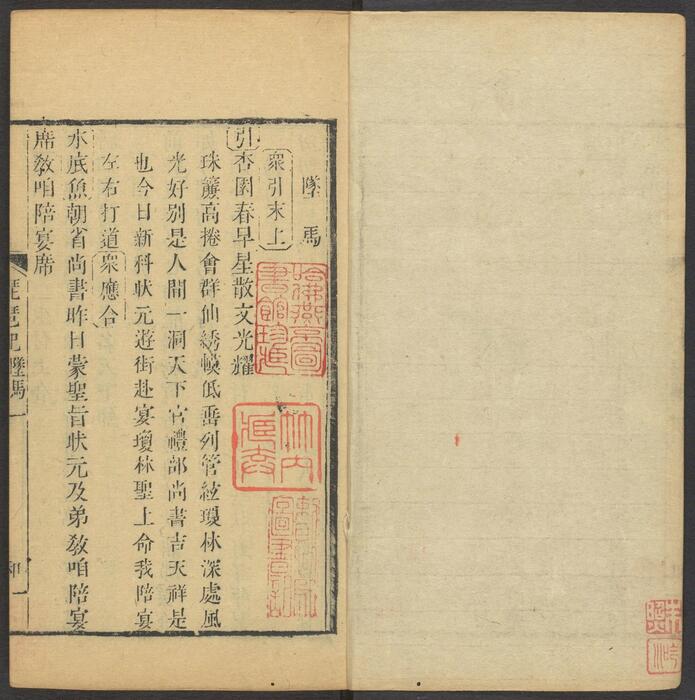 墜馬
衆引末上
引杏園春早星散文光耀
珠簾高捲會群仙綉幙低垂列管絃瓊林深處風
光好别是人間一洞天下官禮部尚書吉天祥是
也今日新科狀元遊街赴宴瓊林聖上命我陪宴
左右打道衆應合
水底魚朝省尚書昨日蒙聖旨狀元及弟教咱陪宴
席教咱陪宴席
琵琶記墜馬
哈佛燕京圖書館珍藏